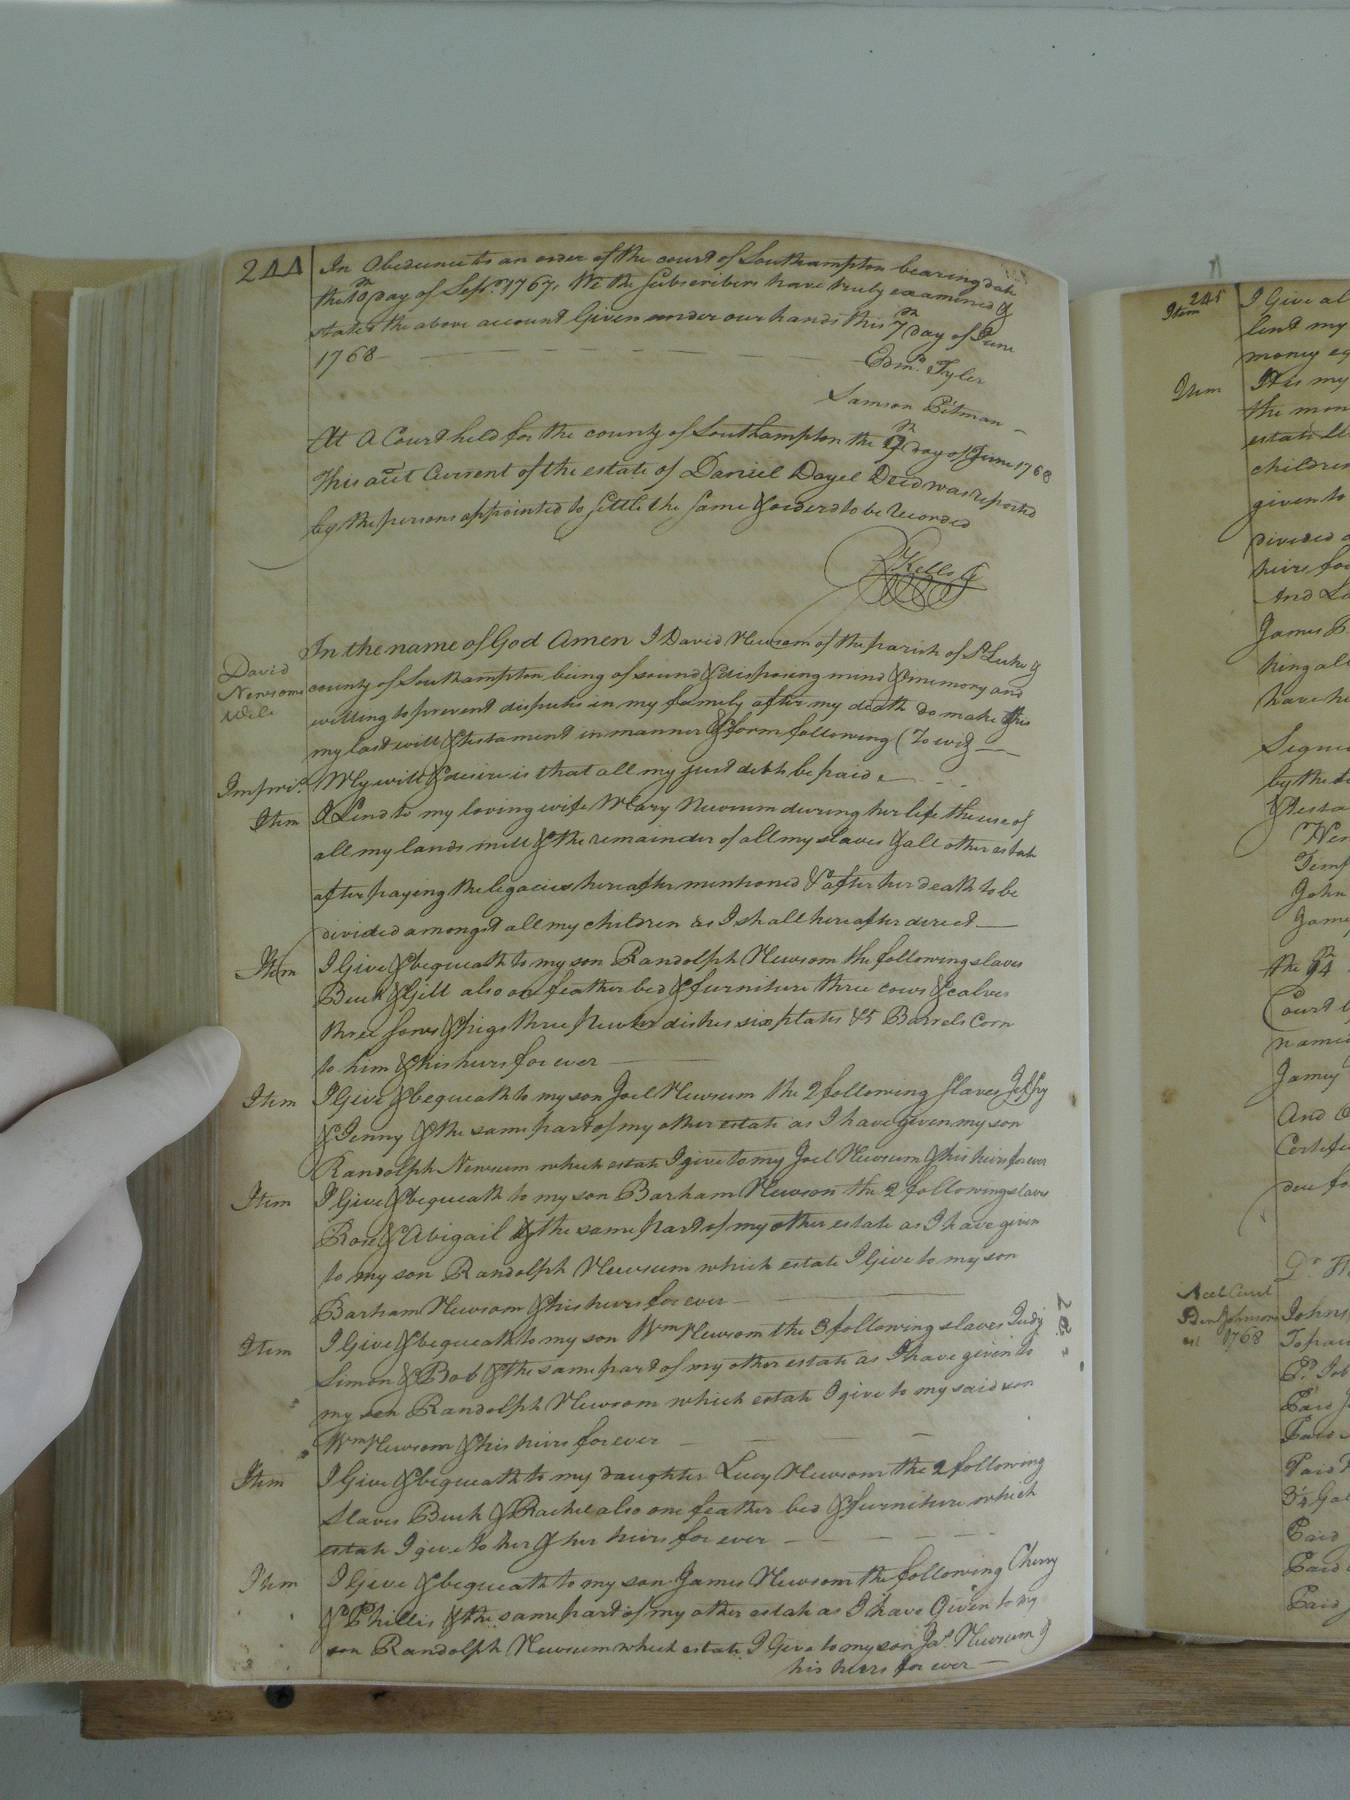 244
In Obedience to an order of the court of Southampton bearing date
the 10th day of Sepr. 1767. We the Subscribers have truly examined &
stated the above account Given under our hands this 7th day of June
1768
Edmd. Tyler
Samson Pitman
At A Court held for the county of Southampton the 9th day of June 1768
This acct Current of the estate of Daniel Doyel Decd was reported
by the persons appointed to settle the same & orderd to be recorded
R Kello
David
Newsoms
Will
In the name of God Amen I David Newsom of the parish of St Luke &
county of Southampton being of sound & disposing mind & memory and
willing to prevent disputes in my family after my death do make this
my last will & testament in manner & form following (To wit)
Impris. My will & desire is that all my just debts be paid
Item I Lend to my loving wife Mary Newsum during her life the use of
all my lands mill & the remainder of all my slaves & all other estate
after paying the legacies hereafter mentioned & after her death to be
divided amongst all my children as I shall hereafter direct
Item I Give & bequeath to my son Randolph Newsom the following slaves
Buck & Gill also one feather bed & furniture three cows & calves
three sows & pigs three pewter dishes six plates & 5 Barrels Corn
to him & his heirs for ever
Item I Give & bequeath to my son Joel Newsum the 2 following slaves
& Jenny & the same part of my other estate as I have given my son
Randolph Newsum which estate I give to my Joel Newsum & his heirs for ever
Item I Give & bequeath to my son Barham Newsom the 2 following slaves
Rose & Abigail & the same part of my other estate as I have given
to my son Randolph Newsum which estate I Give to my son
Barham Newsom & his heirs for ever
Item I Give & bequeath to my son Wm Newsom the 3 following slaves Judy
Simon & Bob & the same part of my other estate as I have given to
my son Randolph Newsom which estate I give to my said son
Wm Newsom & his heirs for ever
Item I Give & bequeath to my daughter Lucy Newsom the 2 following
Slaves Buck & Rachel also one feather bed & furniture which
estate I give to her & her heirs for ever
Item I Give & bequeath to my son James Newsom the following Cherry
& Phillis & the same part of my other estate as I have Given to my
son Randolph Newsum which estate I Give to my son Jas. Newsum &
his heirs for ever
245
Item I Give al
lend my
money eq
Item It is my
the mon
estate
children
given to
divided a
heirs for
And La
James B
hing all
have he
Signe
by the
& testa
Temp
John
Jame
the 14
Court
named
Jamey
And
Certif
due fo
Acct Curt
Ben Johnson
1768
Johns
To paid
Pd. Job
Paid J
Paid
Paid
3¼ Gal
Paid
Paid
Paid